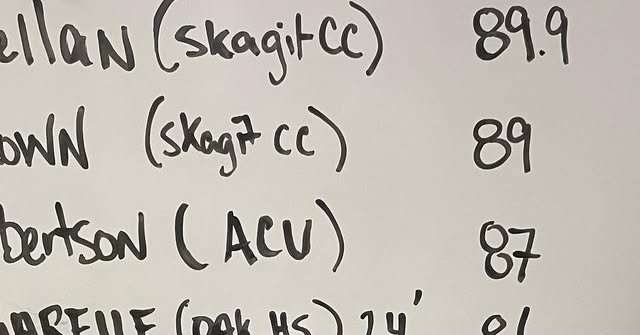 ellaN (skagit CC) 89.9
OWN (skagit CC) 89
bertsoN (ACU) 87
ARELLE (OAK HS) 24'